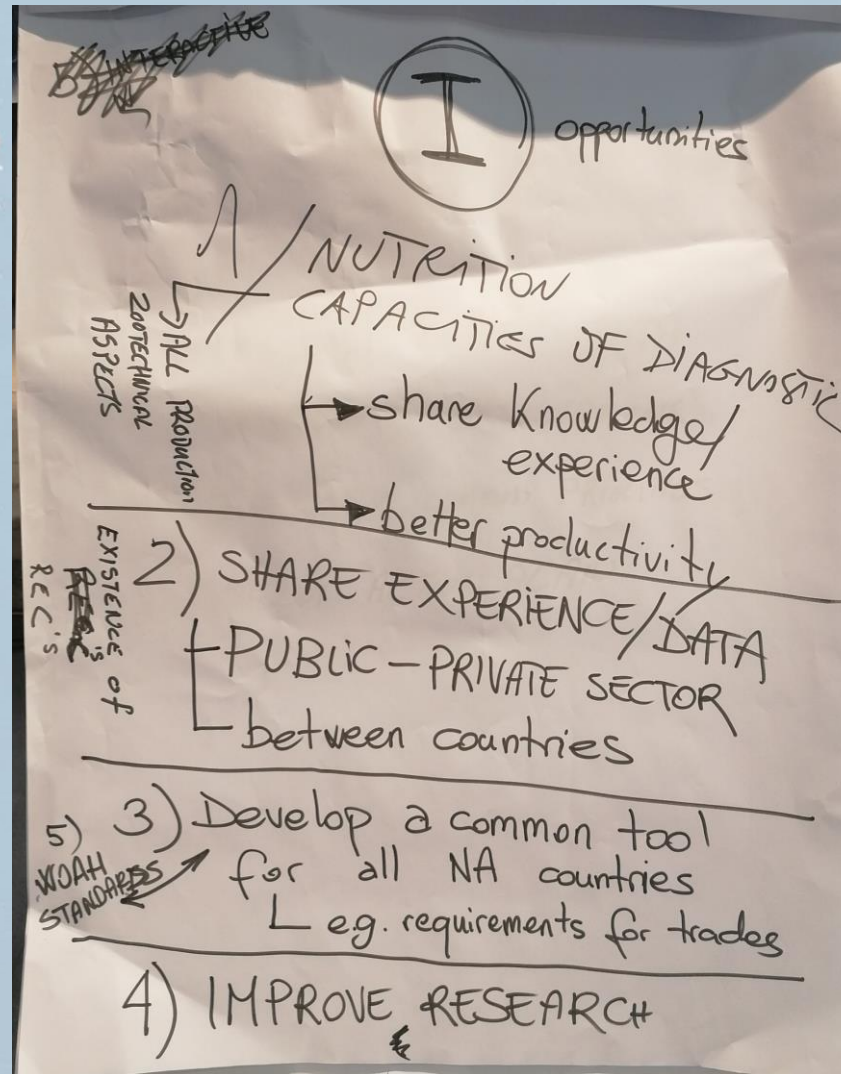 INTERACTIVE
I opportunities
1/ NUTRITION
CAPACITIES OF DIAGNOSTIC
→ share Knowledge/
experience
→ better productivity
↳ ALL PRODUCTION
ZOOTECHNICAL
ASPECTS
2) SHARE EXPERIENCE/DATA
PUBLIC - PRIVATE SECTOR
between countries
EXISTENCE of
REC's
3) Develop a common tool
for all NA countries
e.g. requirements for trades
5)
WOAH
STANDARDS
4) IMPROVE RESEARCH